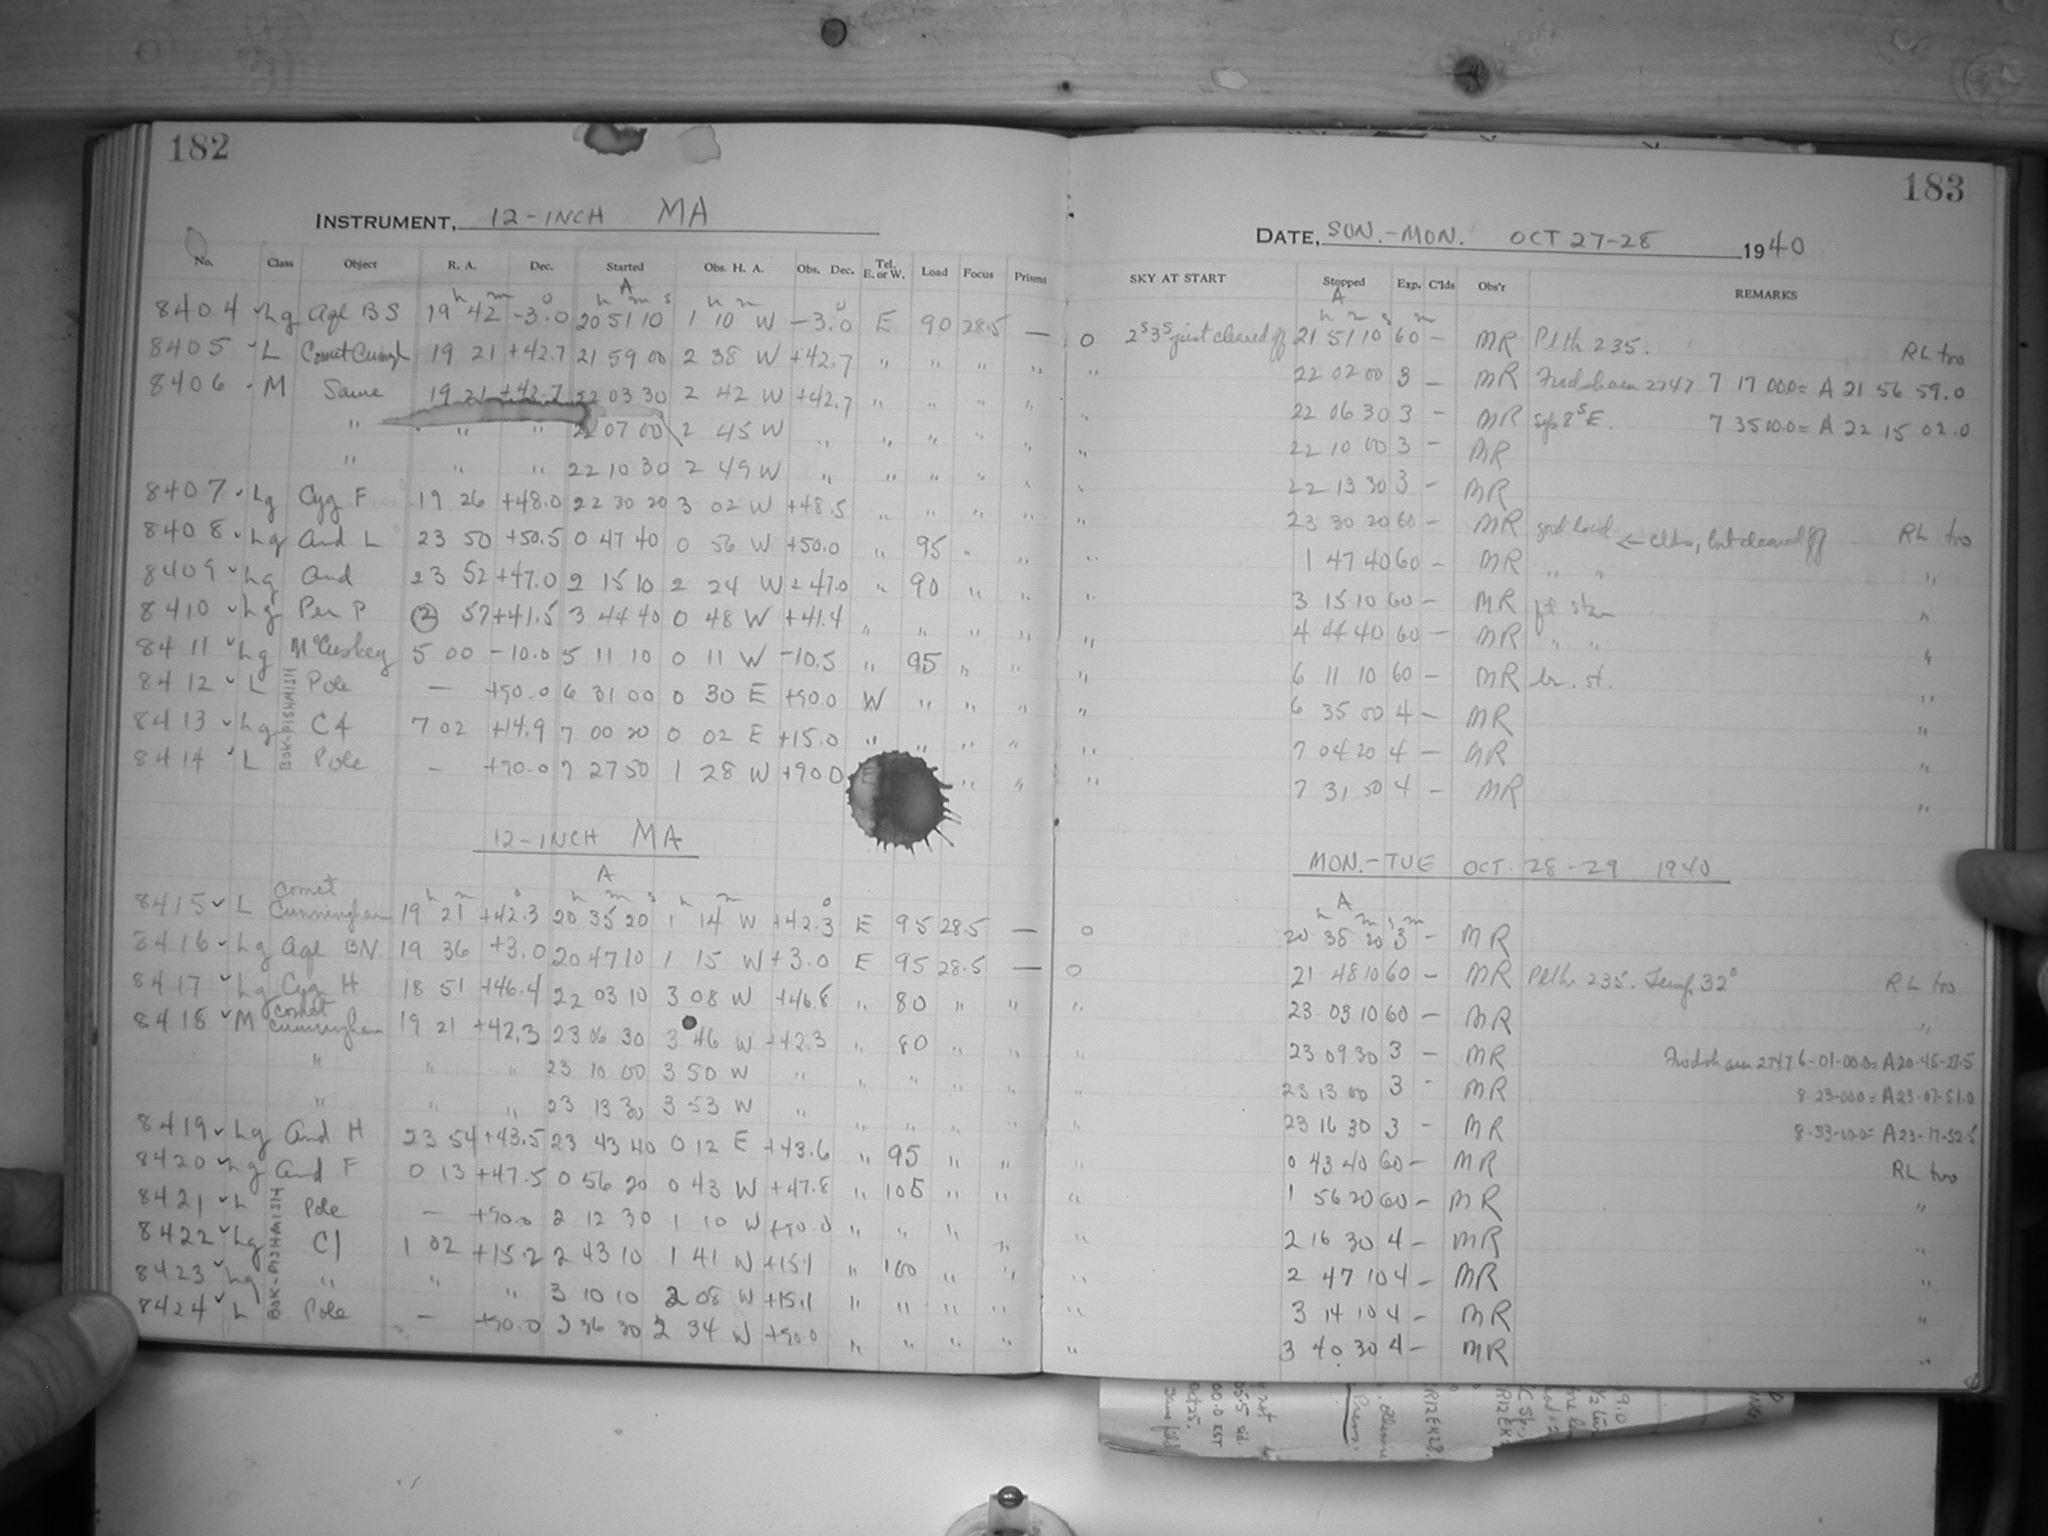 182
INSTRUMENT, 12-INCH MA
No. Class Object R. A. Dec. Started Obs. H. A. Obs. Dec. Tel. E. or W. Load Focus Prisms
A
h m o h m s h m o
8404 ✓ Lg Aql BS 19 42 -3.0 20 51 10 1 10 W -3.0 E 90 28.5 —
8405 ✓ L Comet Cunngh 19 21 +42.7 21 59 00 2 38 W +42.7 " " " "
8406 - M Same 19 21 +42.7 22 03 30 2 42 W +42.7 " " " "
" " " 22 07 00 2 45 W " " " " "
" " " 22 10 30 2 49 W " " " " "
8407 ✓ Lg Cyg F 19 26 +48.0 22 30 20 3 02 W +48.5 " " " "
8408 ✓ Lg And L 23 50 +50.5 0 47 40 0 56 W +50.0 " 95 " "
8409 ✓ Lg And 23 52 +47.0 2 15 10 2 24 W +47.0 " 90 " "
8410 ✓ Lg Per P 2 57 +41.5 3 44 40 0 48 W +41.4 " " " "
8411 ✓ Lg McCuskey 5 00 -10.0 5 11 10 0 11 W -10.5 " 95 " "
8412 ✓ L Pole — +90.0 6 31 00 0 30 E +90.0 W " " "
8413 ✓ Lg C4 7 02 +14.9 7 00 20 0 02 E +15.0 " " " "
8414 ✓ L Pole — +90.0 7 27 50 1 28 W +90.0 E " "
BOK-PISHMISH
12-INCH MA
A
h m o h m s h m o
8415 ✓ L Comet Cunningham 19 21 +42.3 20 35 20 1 14 W +42.3 E 95 28.5 —
8416 ✓ Lg Aql BN. 19 36 +3.0 20 47 10 1 15 W +3.0 E 95 28.5 —
8417 ✓ Lg Cyg H 18 51 +46.4 22 03 10 3 08 W +46.8 " 80 " "
8418 ✓ M Comet Cunningham 19 21 +42.3 23 06 30 3 46 W +42.3 " 80 " "
" " " 23 10 00 3 50 W " " " " "
" " " 23 13 30 3 53 W " " " " "
8419 ✓ Lg And H 23 54 +43.5 23 43 40 0 12 E +43.6 " 95 " "
8420 ✓ Lg And F 0 13 +47.5 0 56 20 0 43 W +47.8 " 105 " "
8421 ✓ L Pole — +90.0 2 12 30 1 10 W +90.0 " " " "
8422 ✓ Lg C1 1 02 +15.2 2 43 10 1 41 W +15.1 " 100 " "
8423 ✓ Lg " " " 3 10 10 2 08 W +15.1 " " " "
8424 ✓ L Pole — +90.0 3 36 30 2 34 W +90.0 " " " "
BOK-PISHMISH
183
DATE, SUN.-MON. OCT 27-28 1940
SKY AT START Stopped Exp. C'lds Obs'r REMARKS
A
h m s m
0 2s 3s just cleared off 21 51 10 60 — MR Plth 235. RL too
" 22 02 00 3 — MR Frodsham 2747 7 17 00.0 = A 21 56 59.0
" 22 06 30 3 — MR Sep 8s E. 7 35 00.0 = A 22 15 02.0
" 22 10 00 3 — MR
" 22 13 30 3 — MR
" 23 30 20 60 — MR good ← clds, but cleared off RL too
" 1 47 40 60 — MR " " "
" 3 15 10 60 — MR "
" 4 44 40 60 — MR " " "
" 6 11 10 60 — MR br. st. "
" 6 35 00 4 — MR "
" 7 04 20 4 — MR "
" 7 31 50 4 — MR "
MON.-TUE OCT. 28-29 1940
A
h m s m
0 20 38 20 3 — MR
0 21 48 10 60 — MR Plth 235. Temp. 32° RL too
" 23 03 10 60 — MR "
" 23 09 30 3 — MR Frodsham 2747 6-01-00.0 = A 20-45-27.5
" 23 13 00 3 — MR 8-23-00.0 = A 23-07-51.0
" 23 16 30 3 — MR 8-33-00.0 = A 23-17-52.5
" 0 43 40 60 — MR RL too
" 1 56 20 60 — MR "
2 16 30 4 — MR "
" 2 47 10 4 — MR "
" 3 14 10 4 — MR "
" 3 40 30 4 — MR "